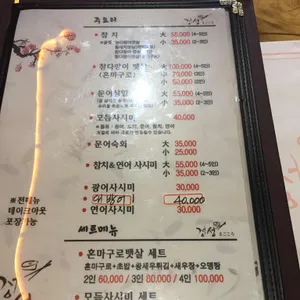 주요리 경성
• 참 치 大 55,000 (4~5인)
小 35,000 (2~3인)
• 참다랑어 뱃살 大 100,000 (4~5인)
(혼마구로) 中
小 50,000
大 55,000
小 35,000 (2~3인)
• 모듬사시미 40,000
• 문어숙회 大 35,000
小 25,000
• 참치&연어 사시미 大 55,000 (4~5인)
小 35,000 (2~3인)
• 광어사시미 30,000
40,000
• 연어사시미 30,000
※ 전메뉴
테이크아웃
포장가능
세트메뉴 경성
まごころ
• 혼마구로뱃살 세트
혼마구로+초밥+왕새우튀김+새우장+오뎅탕
2인 60,000 / 3인 80,000 / 4인 100
• 모듬사시미 세트